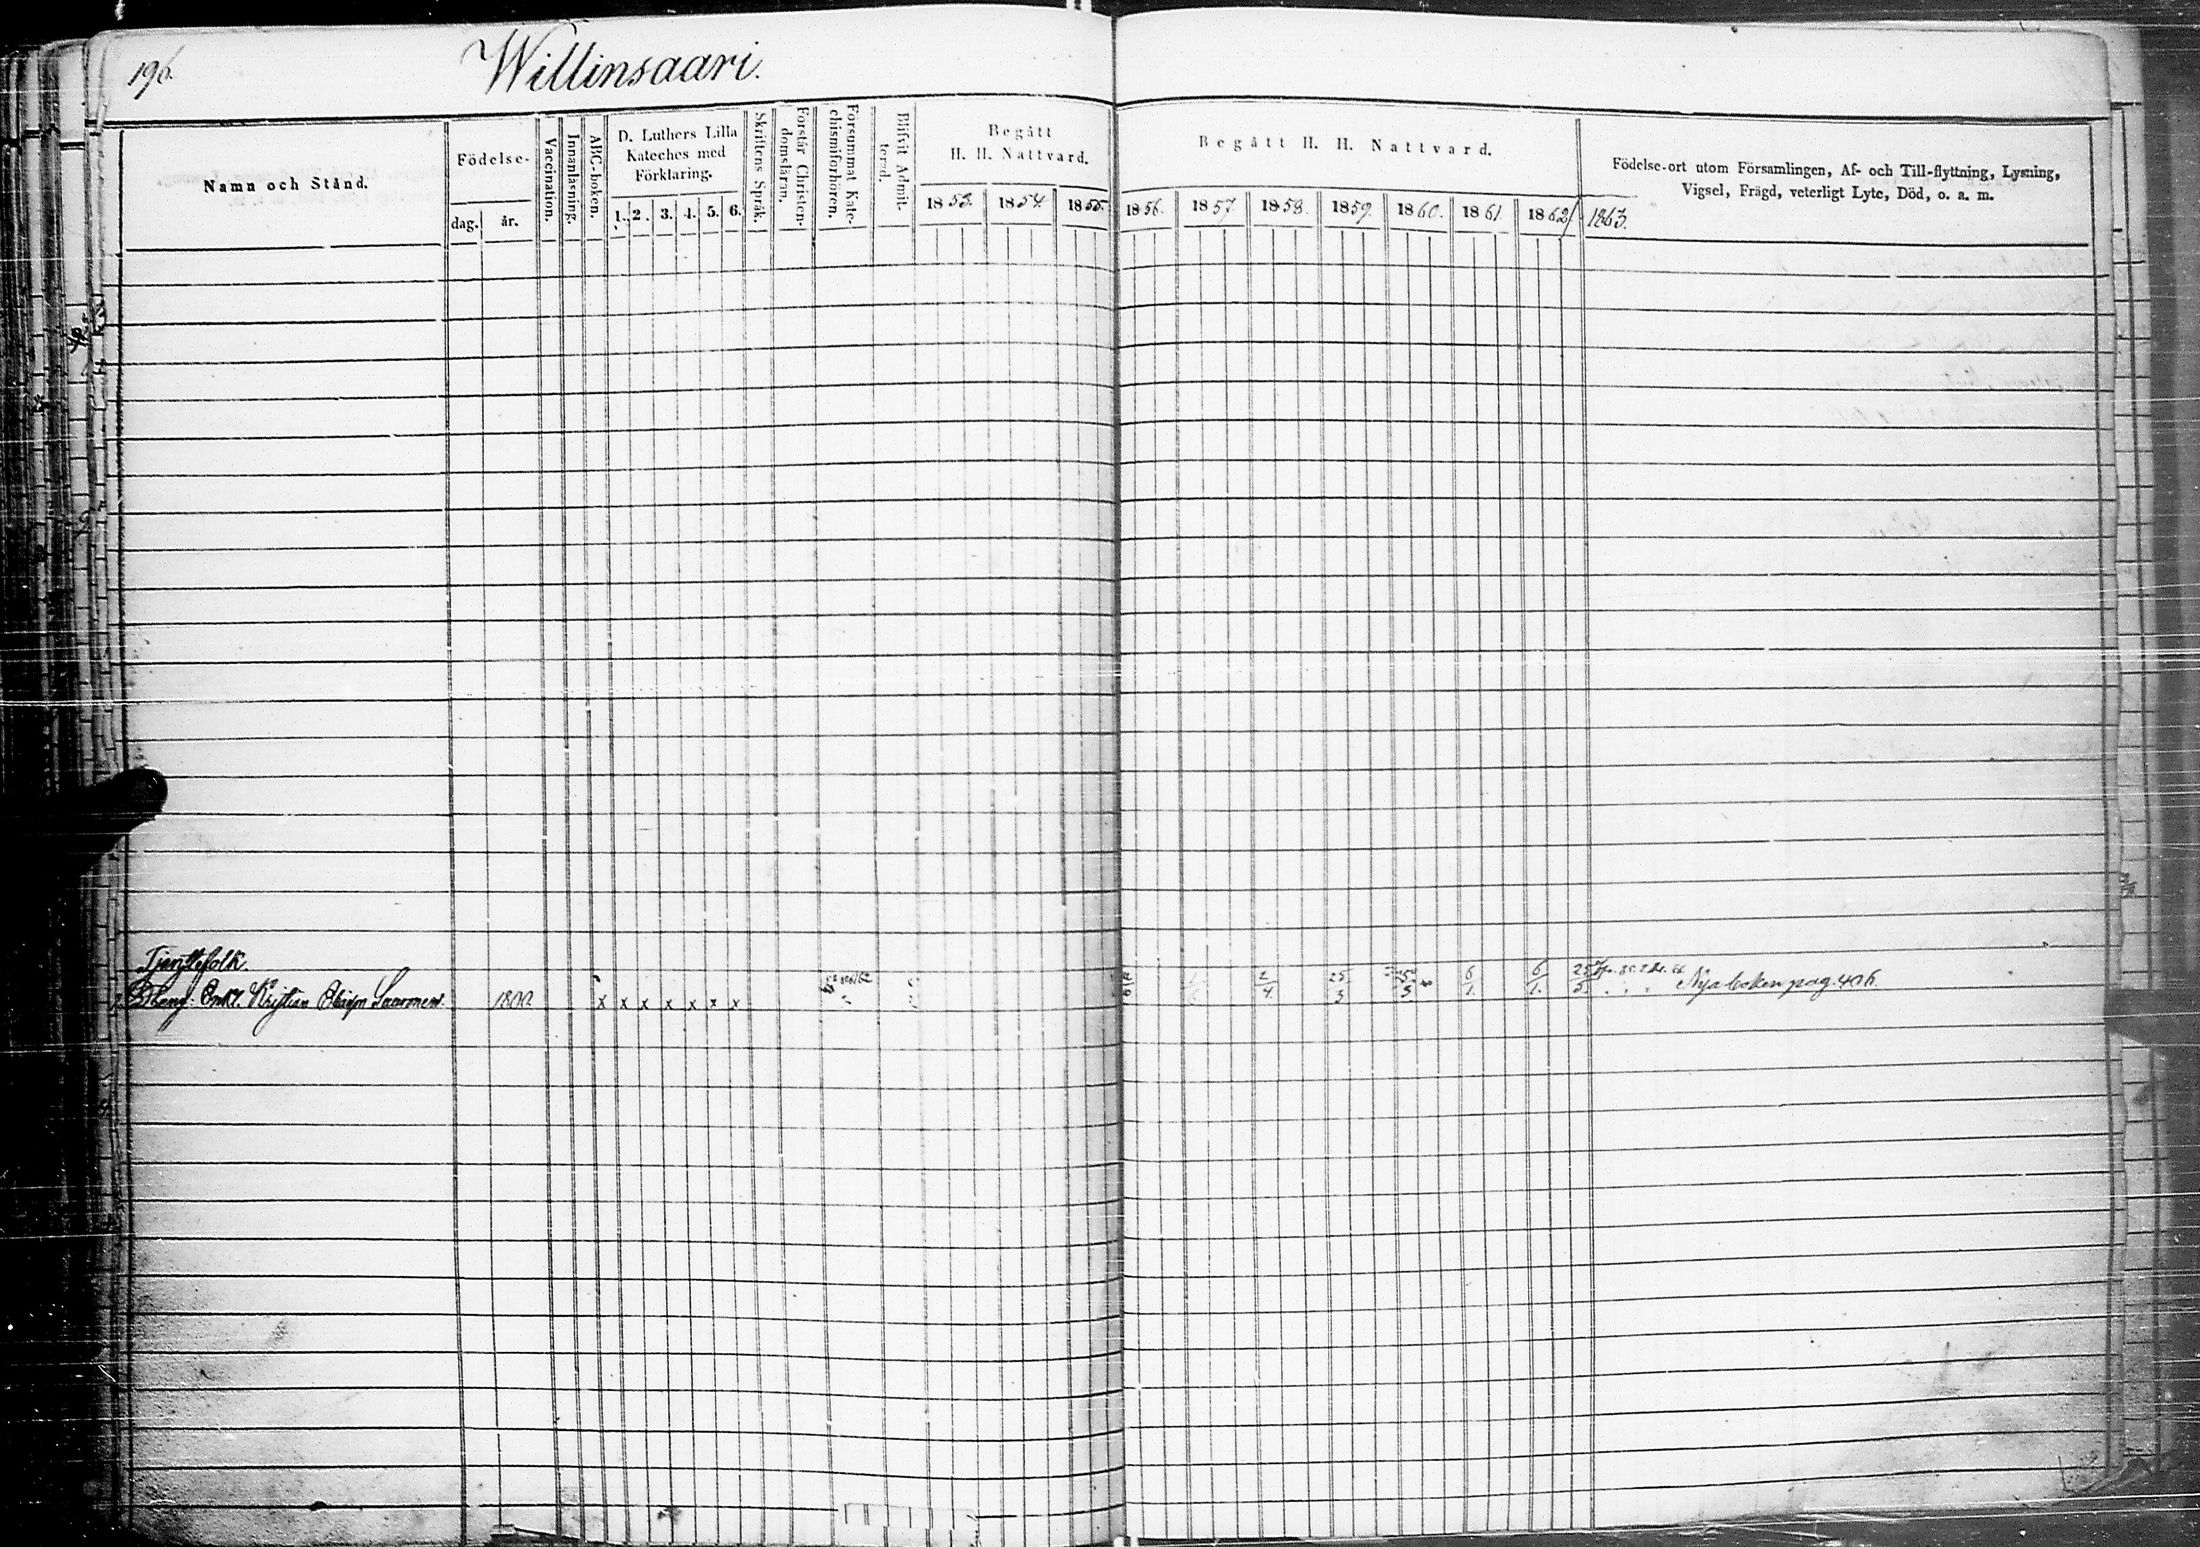 196.
Willinsaari.
Namn och Stånd.
Födelse-
dag. år.
Vaccination.
Innanläsning.
ABC-boken.
D. Luthers Lilla
Kateches med
Förklaring.
1. 2. 3. 4. 5. 6.
Skriftens Språk.
Förstår Christen-
domsläran.
Försummat Kate-
chismiförhören.
Blifvit Admit-
terad.
Begått
H. H. Nattvard.
1853. 1854. 1855.
Begått H. H. Nattvard.
1856. 1857. 1858. 1859. 1860. 1861. 1862/ 1863.
Födelse-ort utom Församlingen, Af- och Till-flyttning, Lysning,
Vigsel, Frägd, veterligt Lyte, Död, o. a. m.
Tjenstefolk.
Dreng: Enkl. Kristian Saarinen. 1800. x x x x x x x 2/4. 25/3 6/1. 6/1. 25/5. Nya boken pag. 406.